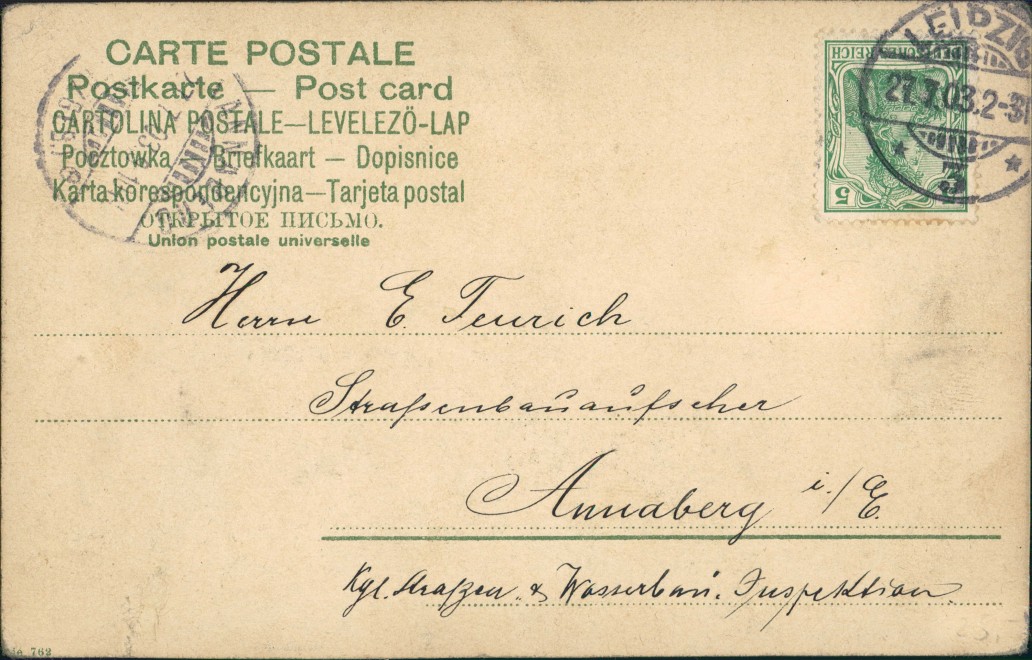 CARTE POSTALE
Postkarte — Post card
CARTOLINA POSTALE—LEVELEZÖ-LAP
Pocztowka — Briefkaart — Dopisnice
Karta korespondencyjna—Tarjeta postal
ОТКРЫТОЕ ПИСЬМО.
Union postale universelle
DEUTSCHES REICH
5
LEIPZIG
27.7.03.2-3
Herrn E. Teurich
Straßenbauaufseher
Annaberg i./E.
Kgl. Straßen- & Wasserbau-Inspektion.
762